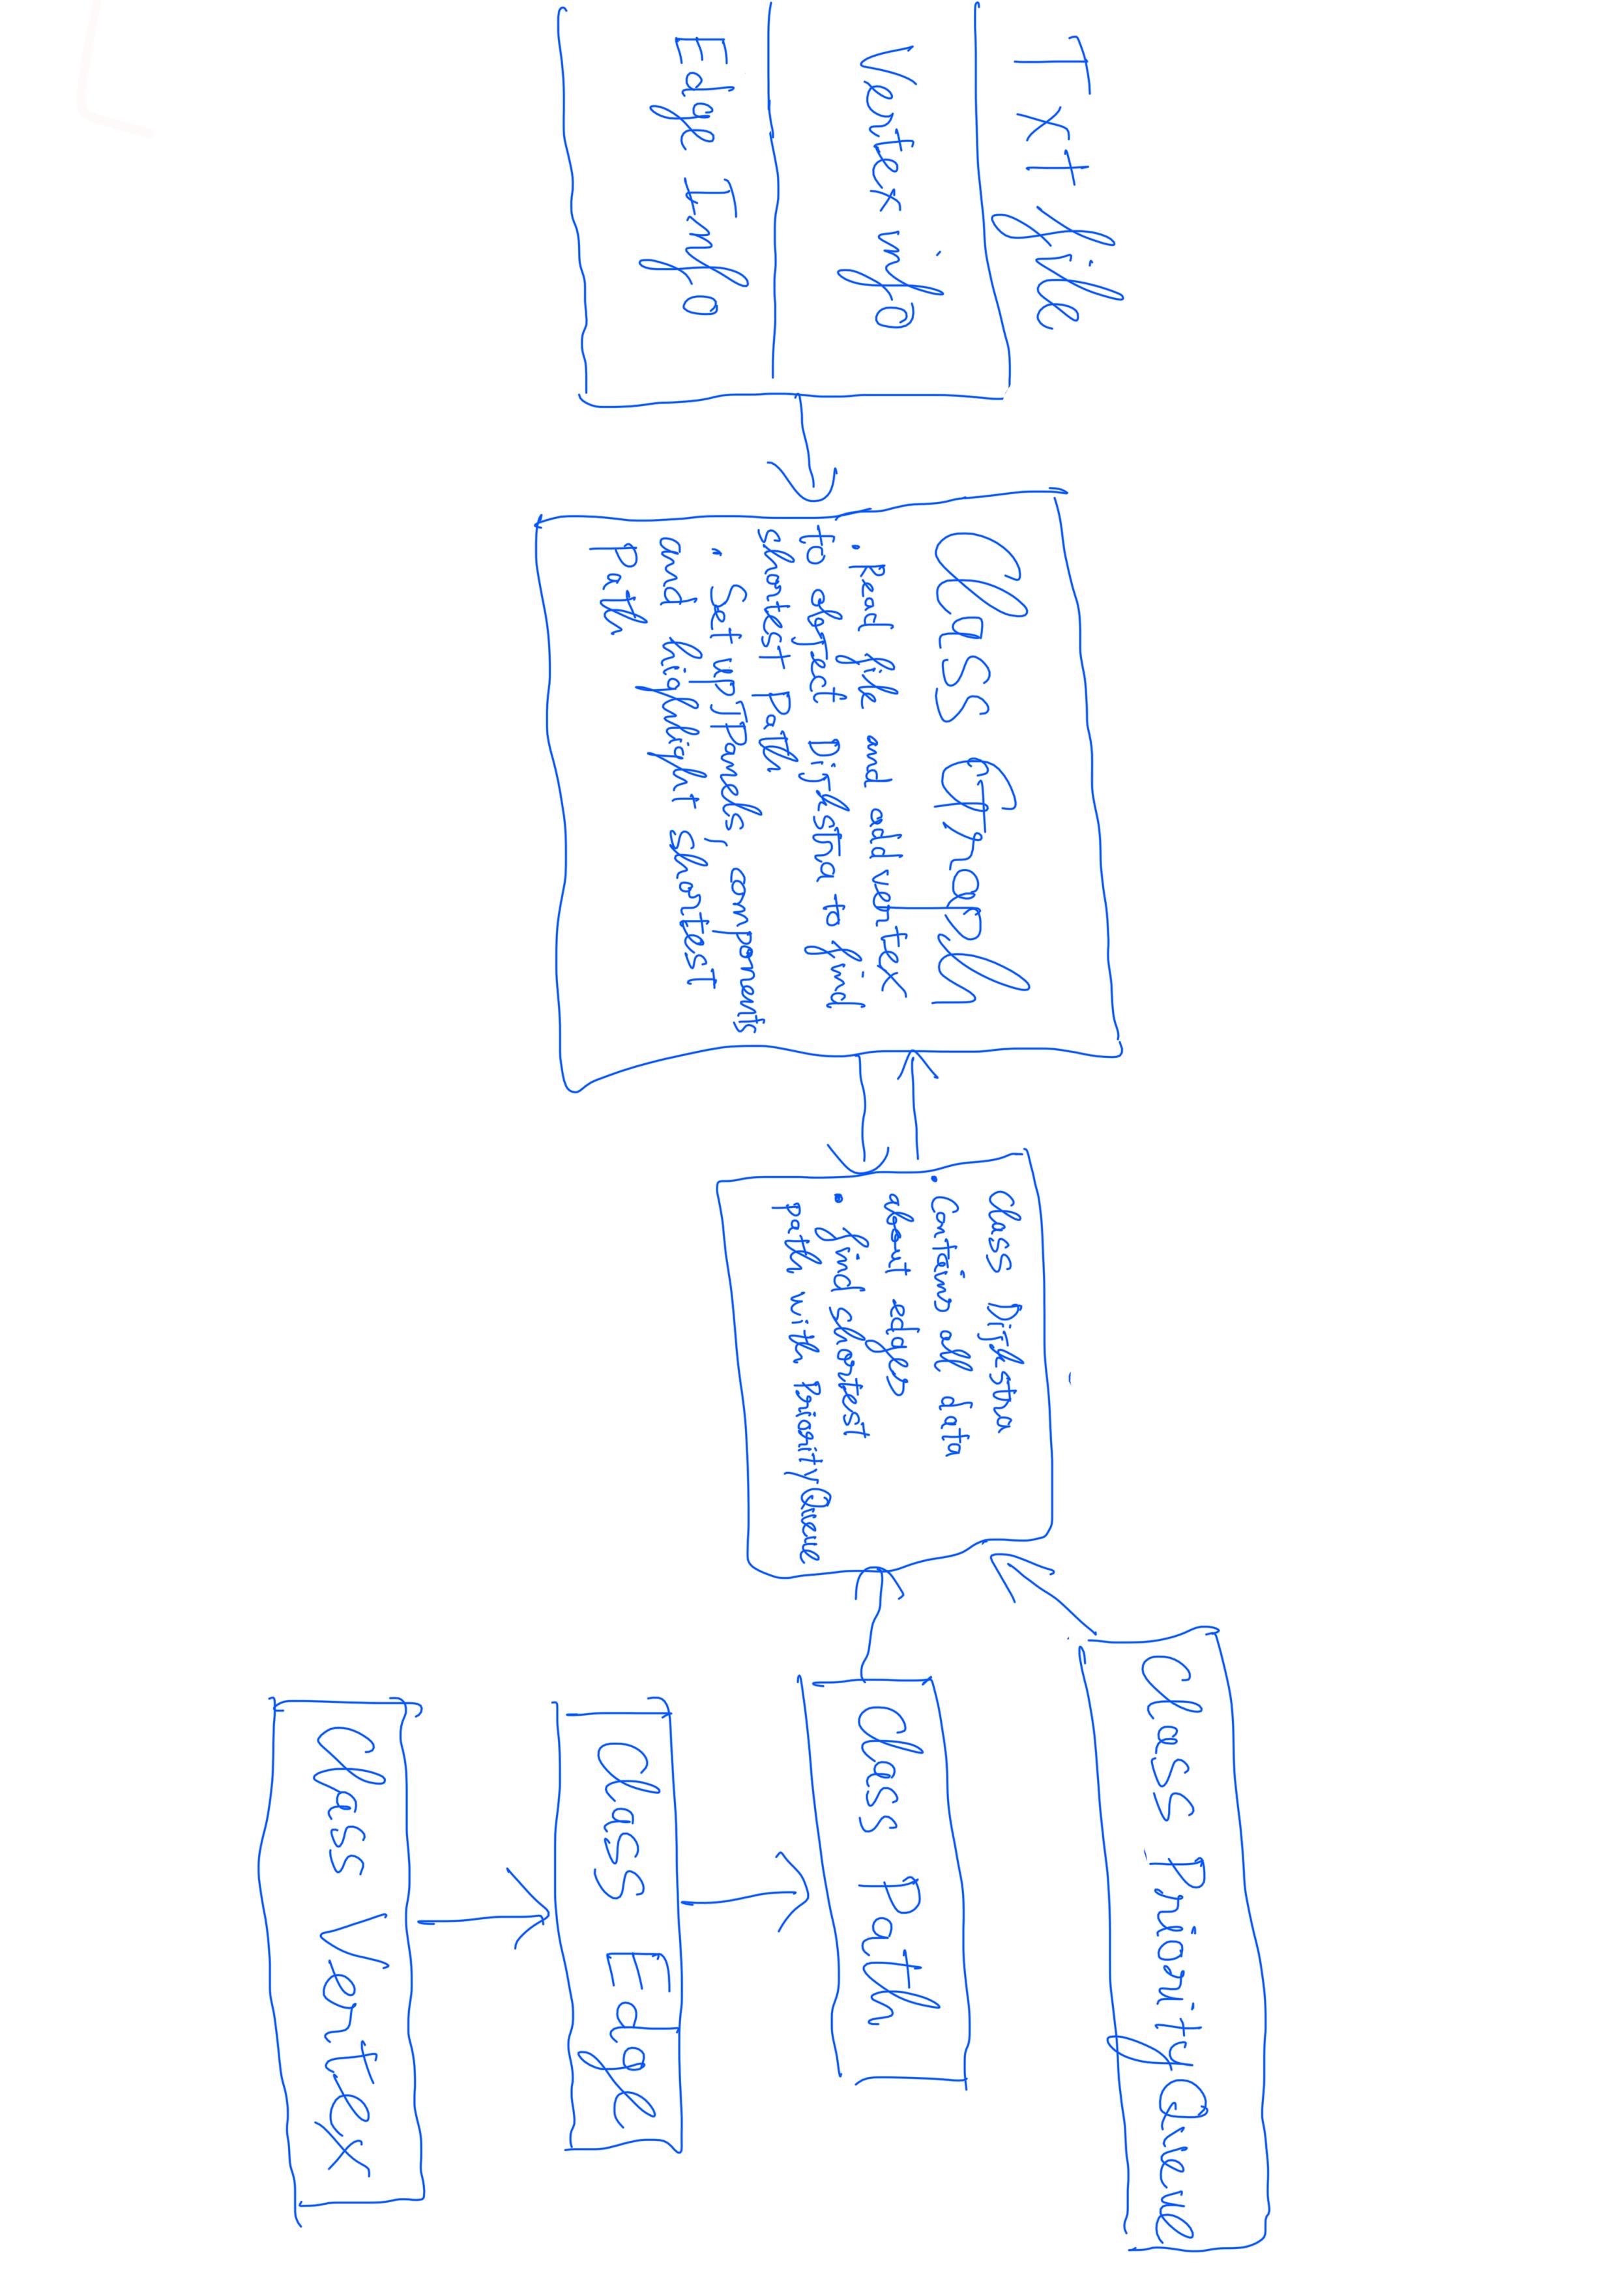 Txt file
Vertex info
Edge Info
Class Graph
• read file and add vertex
to object Dijkstra to find
shortest Path
• Set up JPanels, components
and highlight shortest
Path
class Dijkstra
• Contains all data
about edges
• find shortest
path with PriorityQueue
Class PriorityQueue
Class Path
Class Edge
Class Vertex